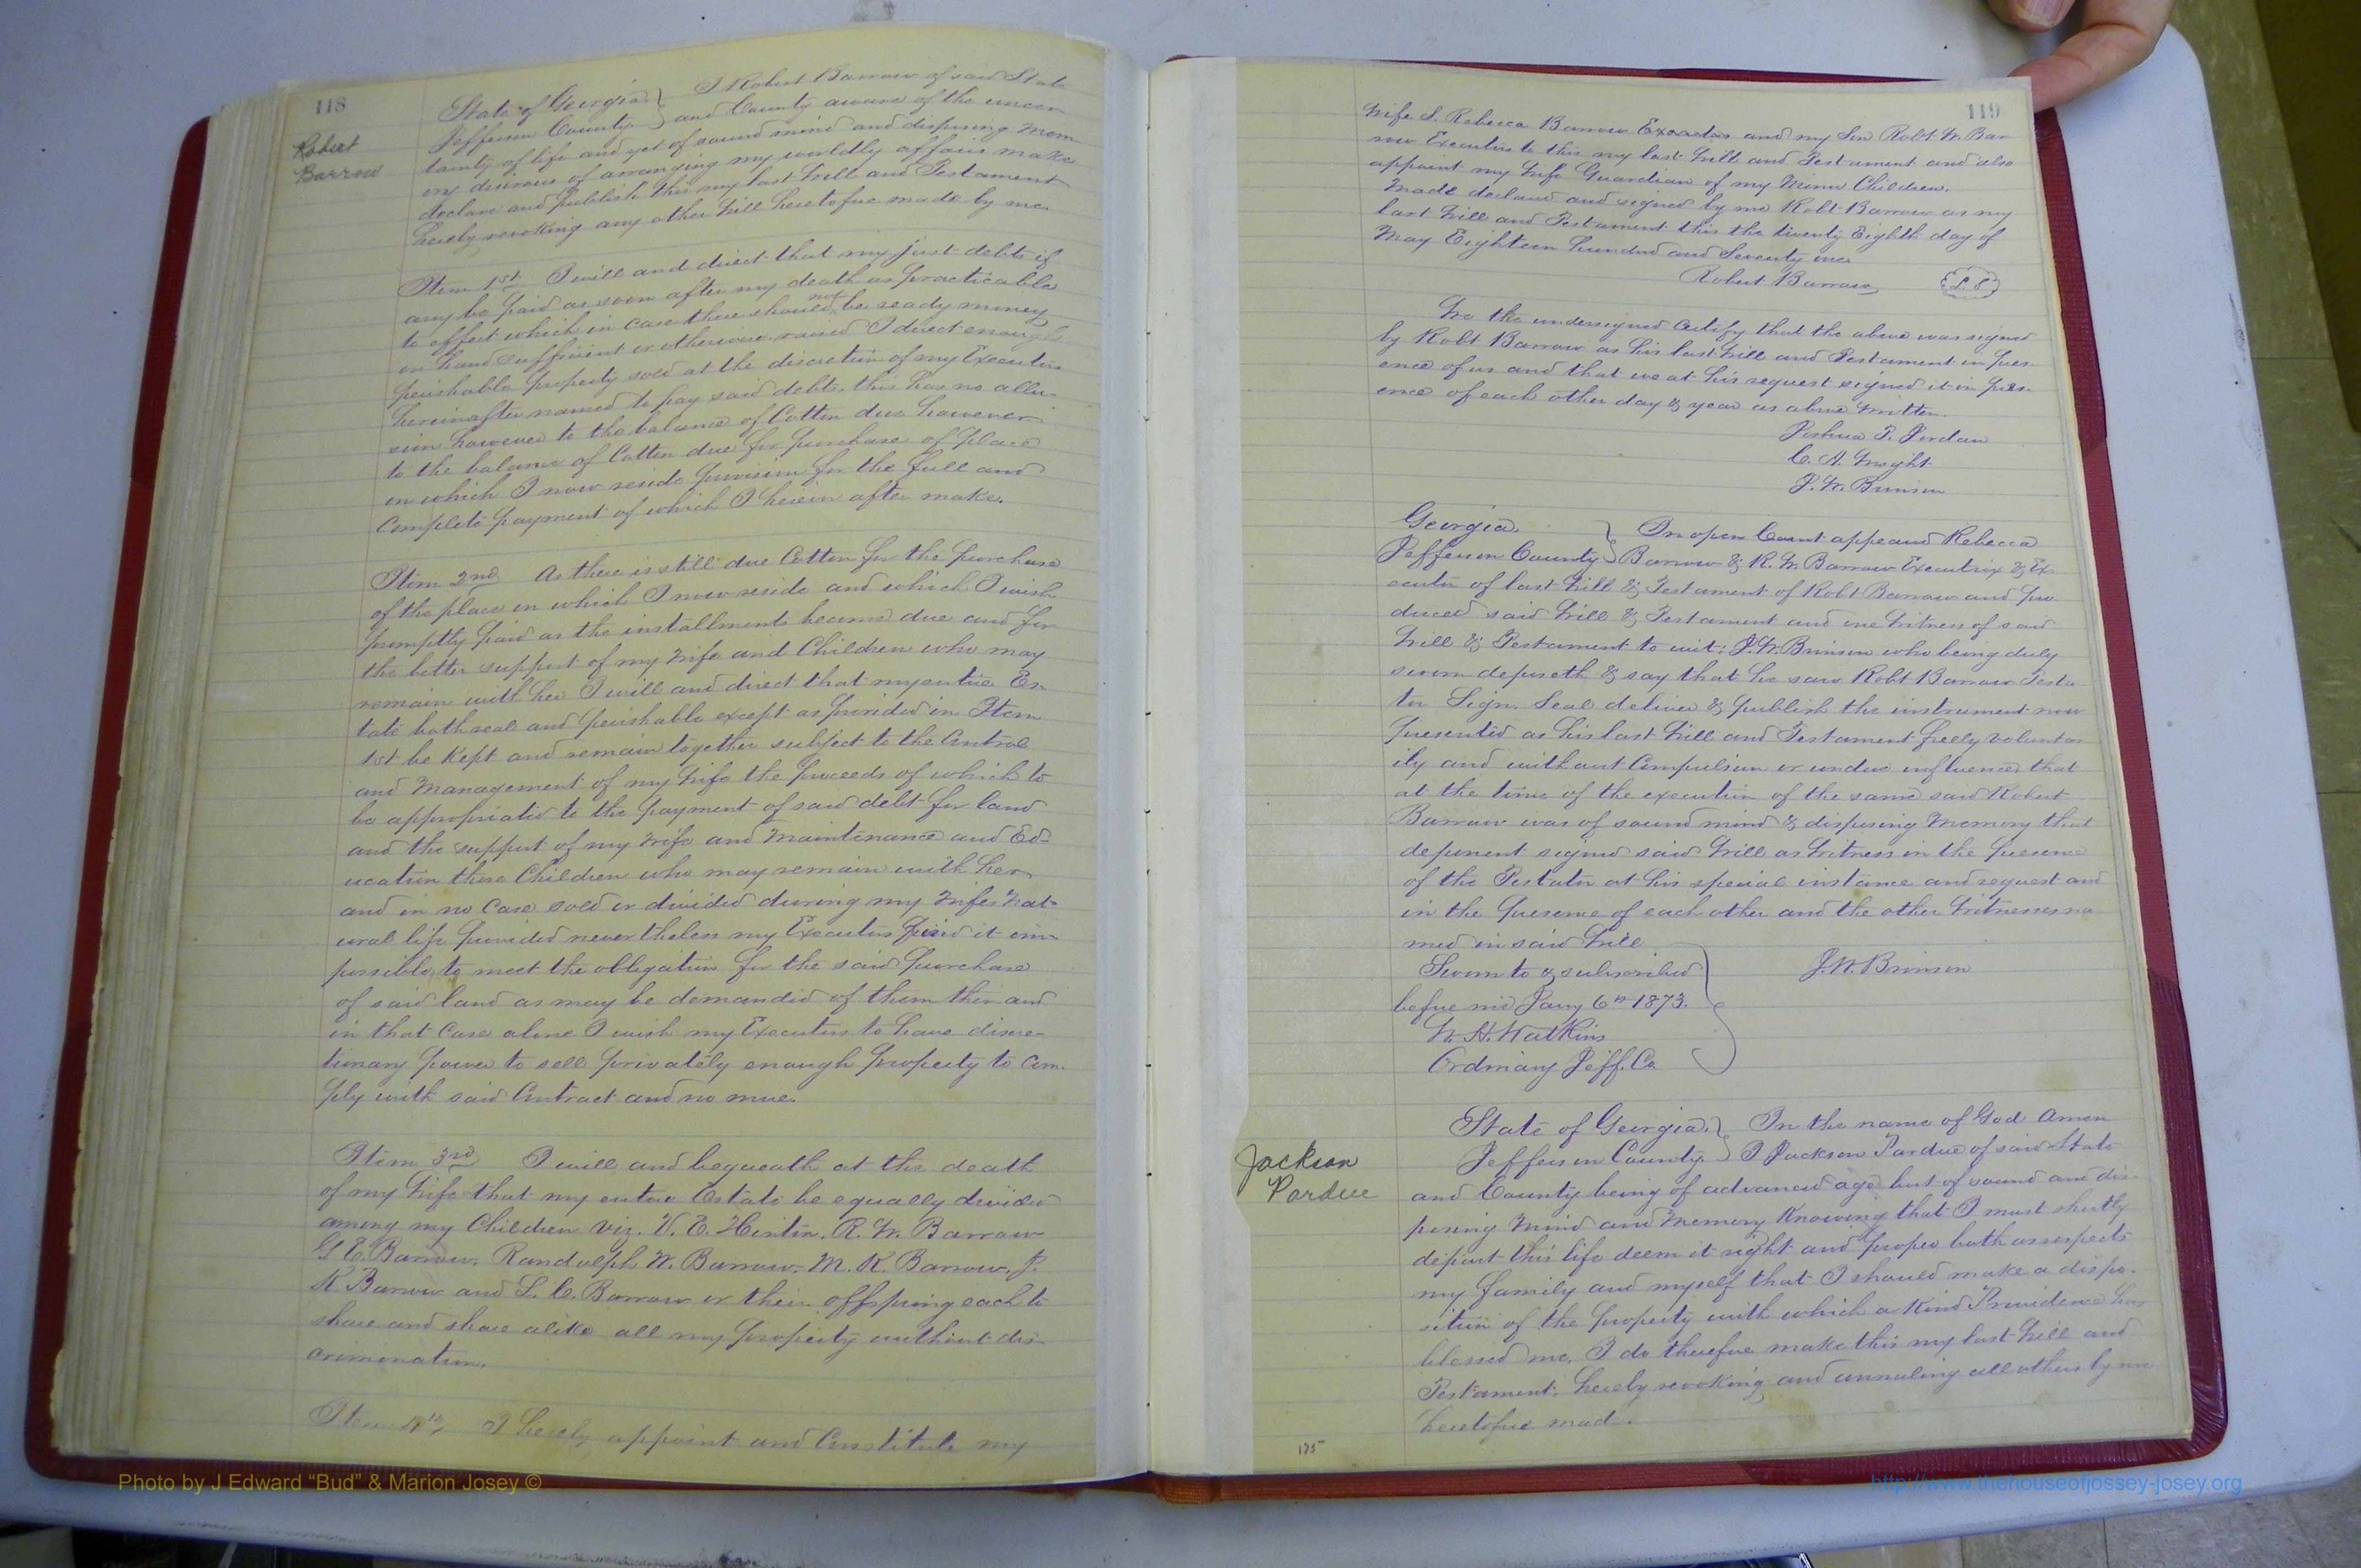 118
Robert
Barrow
State of Georgia } I Robert Barrow of said State
Jefferson County } and County aware of the uncer
tainty of life and yet of sound mind and disposing mem
ory desirous of arranging my worldly affairs make
declare and publish this my last Will and Testament
hereby revoking any other Will heretofore made by me.
Item 1st. I will and direct that my just debts if
any be paid as soon after my death as practicable
to effect which in case there should not be ready money
on hand sufficient or otherwise raised I direct enough
perishable property sold at the discretion of my Executors
hereinafter named to pay said debts. this has no allu-
sion however to the balance of Cotton due however
to the balance of Cotton due for purchase of place
on which I now reside provision for the full and
complete payment of which I herein after make.
Item 2nd As there is still due Cotton for the purchase
of the place on which I now reside and which I wish
promptly paid as the installments become due and for
the better support of my Wife and Children who may
remain with her I will and direct that my entire Es-
tate both real and perishable except as provided in Item
1st be kept and remain together subject to the Control
and Management of my Wife the proceeds of which to
be appropriated to the payment of said debt for land
and the support of my Wife and Maintenance and Ed-
ucation those Children who may remain with her
and in no case sold or divided during my Wifes Nat-
ural life provided nevertheless my Executors find it im-
possible to meet the obligation for the said purchase
of said land as may be demanded of them then and
in that case alone I wish my Executors to have discre-
tionary power to sell privately enough property to com-
ply with said Contract and no more.
Item 3rd I will and bequeath at the death
of my Wife that my entire Estate be equally divided
among my Children viz. V. E. R. W. Barrow
G E. Barrow, Randolph W. Barrow, M. K. Barrow, J.
K Barrow and L. C. Barrow or their offspring each to
share and share alike all my property without dis-
crimination.
Item 4th, I hereby appoint and Constitute my
119
Wife S. Rebecca Barrow Executor and my Son Robt. W. Bar
row Executors to this my last Will and Testament and also
appoint my Wife Guardian of my Minor Children.
Made declared and signed by me Robt Barrow as my
last Will and Testament this the twenty Eighth day of
May Eighteen hundred and Seventy one
Robert Barrow L. S
We the undersigned Certify that the above was signed
by Robt Barrow as his last Will and Testament in pres-
ence of us and that we at his request signed it in pres-
ence of each other day & year as above Written.
Joshua P. Jordan
C. A. Wright
J. W. Brinson
Georgia. } In open Court appeared Rebecca
Jefferson County } Barrow & R. W. Barrow Executrix & Ex-
ecutor of last Will & Testament of Robt Barrow and pro
duced said Will & Testament and one Witness of said
Will & Testament to wit: J. W. Brinson who being duly
sworn deposeth & say that he saw Robt Barrow Testa
tor Sign. Seal deliver & publish the instrument now
presented as his last Will and Testament freely voluntar
ily and without Compulsion or undue influence, that
at the time of the execution of the same said Robert
Barrow was of sound mind & disposing Memory that
deponent signed said Will as Witness in the presence
of the Testator at his special instance and request and
in the presence of each other and the other Witnesses na
med in said Will
Sworn to & subscribed } J. W. Brinson
before me Jany 6th 1873.
W. H. Watkins
Ordinary Jeff. Co
Jackson
Pardue
State of Georgia. } In the name of God Amen
Jefferson County. } I Jackson Pardue of said State
and County being of advanced age but of sound and dis-
posing Mind and Memory Knowing that I must shortly
depart this life deem it right and proper both as respects
my family and myself that I should make a dispo-
sition of the property with which a Kind Providence has
blessed me, I do therefore make this my last Will and
Testament: hereby revoking and annuling all others by me
heretofore made.
175
Photo by J Edward “Bud” & Marion Josey ©
http://www.thehouseofjossey-josey.org